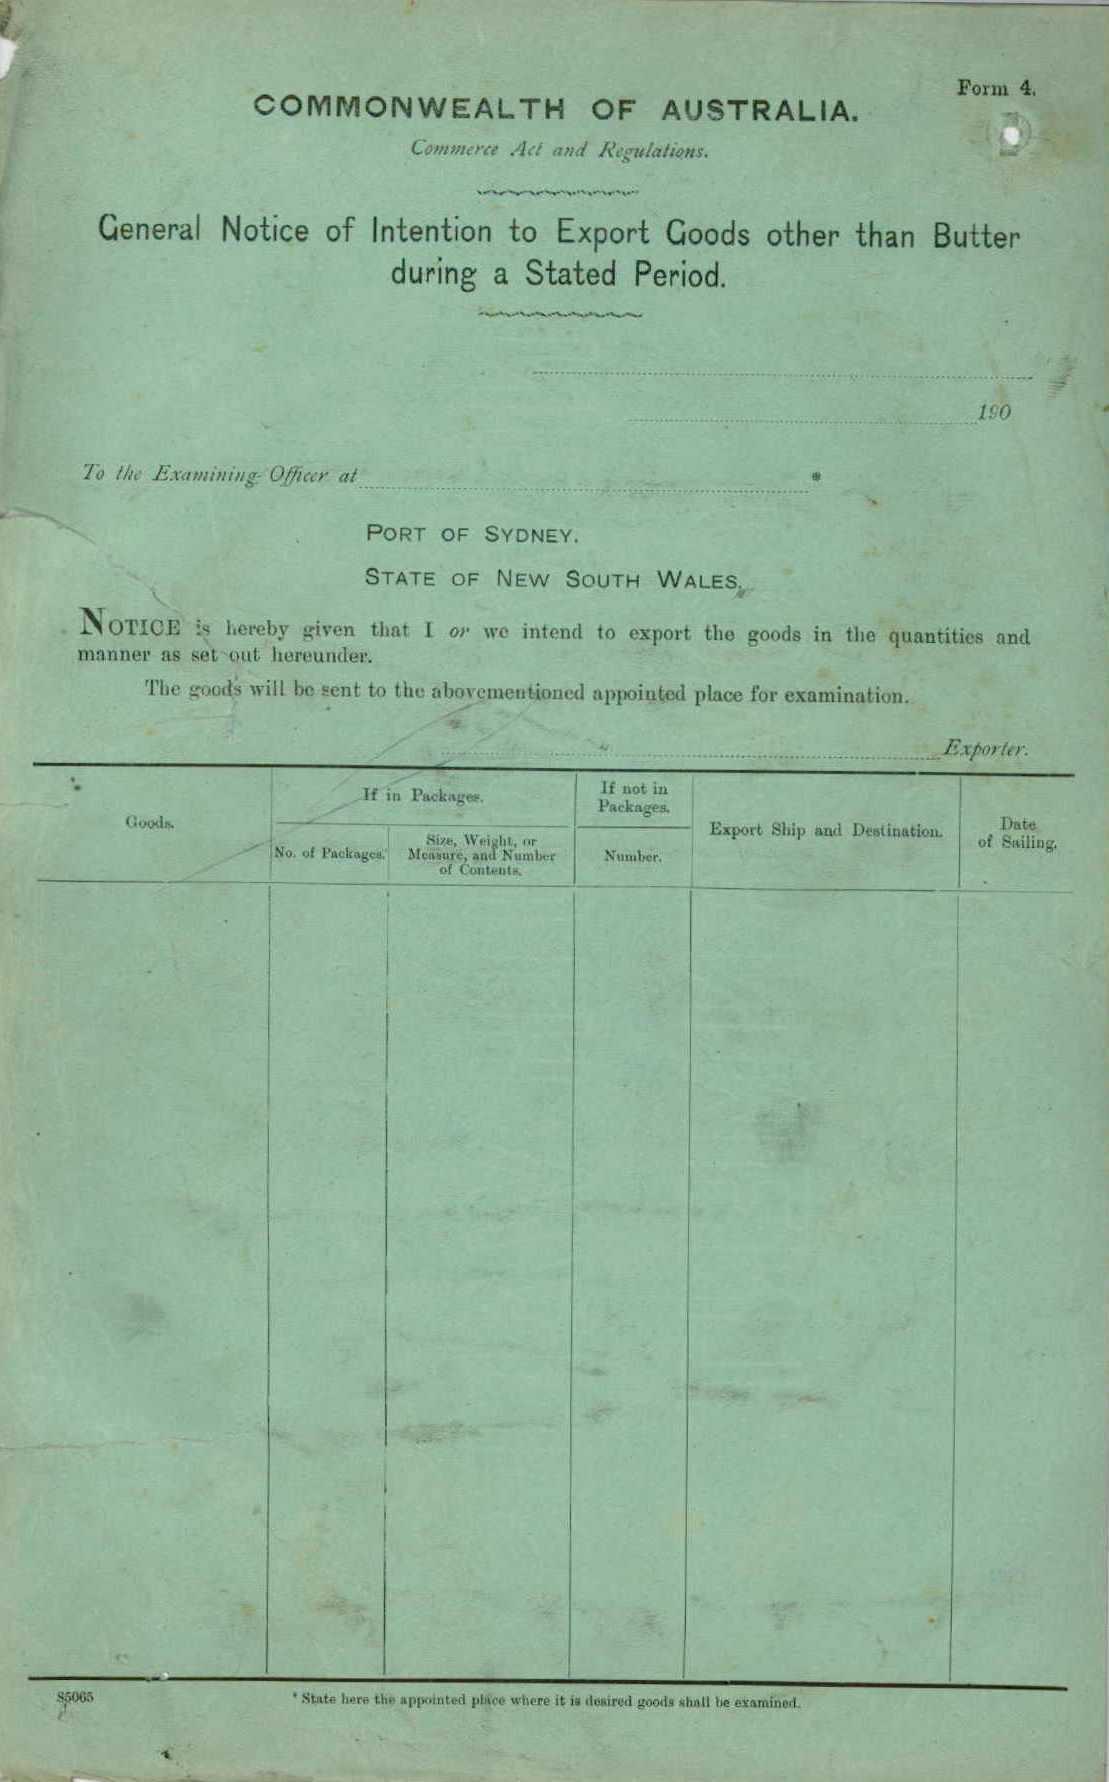 Form 4.
COMMONWEALTH OF AUSTRALIA.
Commerce Act and Regulations.
General Notice of Intention to Export Goods other than Butter
during a Stated Period.
190
To the Examining Officer at *
PORT OF SYDNEY.
STATE OF NEW SOUTH WALES.
NOTICE is hereby given that I or we intend to export the goods in the quantities and
manner as set out hereunder.
The goods will be sent to the abovementioned appointed place for examination.
Exporter.
Goods.
If in Packages.
No. of Packages.
Size, Weight, or
Measure, and Number
of Contents.
If not in
Packages.
Number.
Export Ship and Destination.
Date
of Sailing.
S5065
* State here the appointed place where it is desired goods shall be examined.